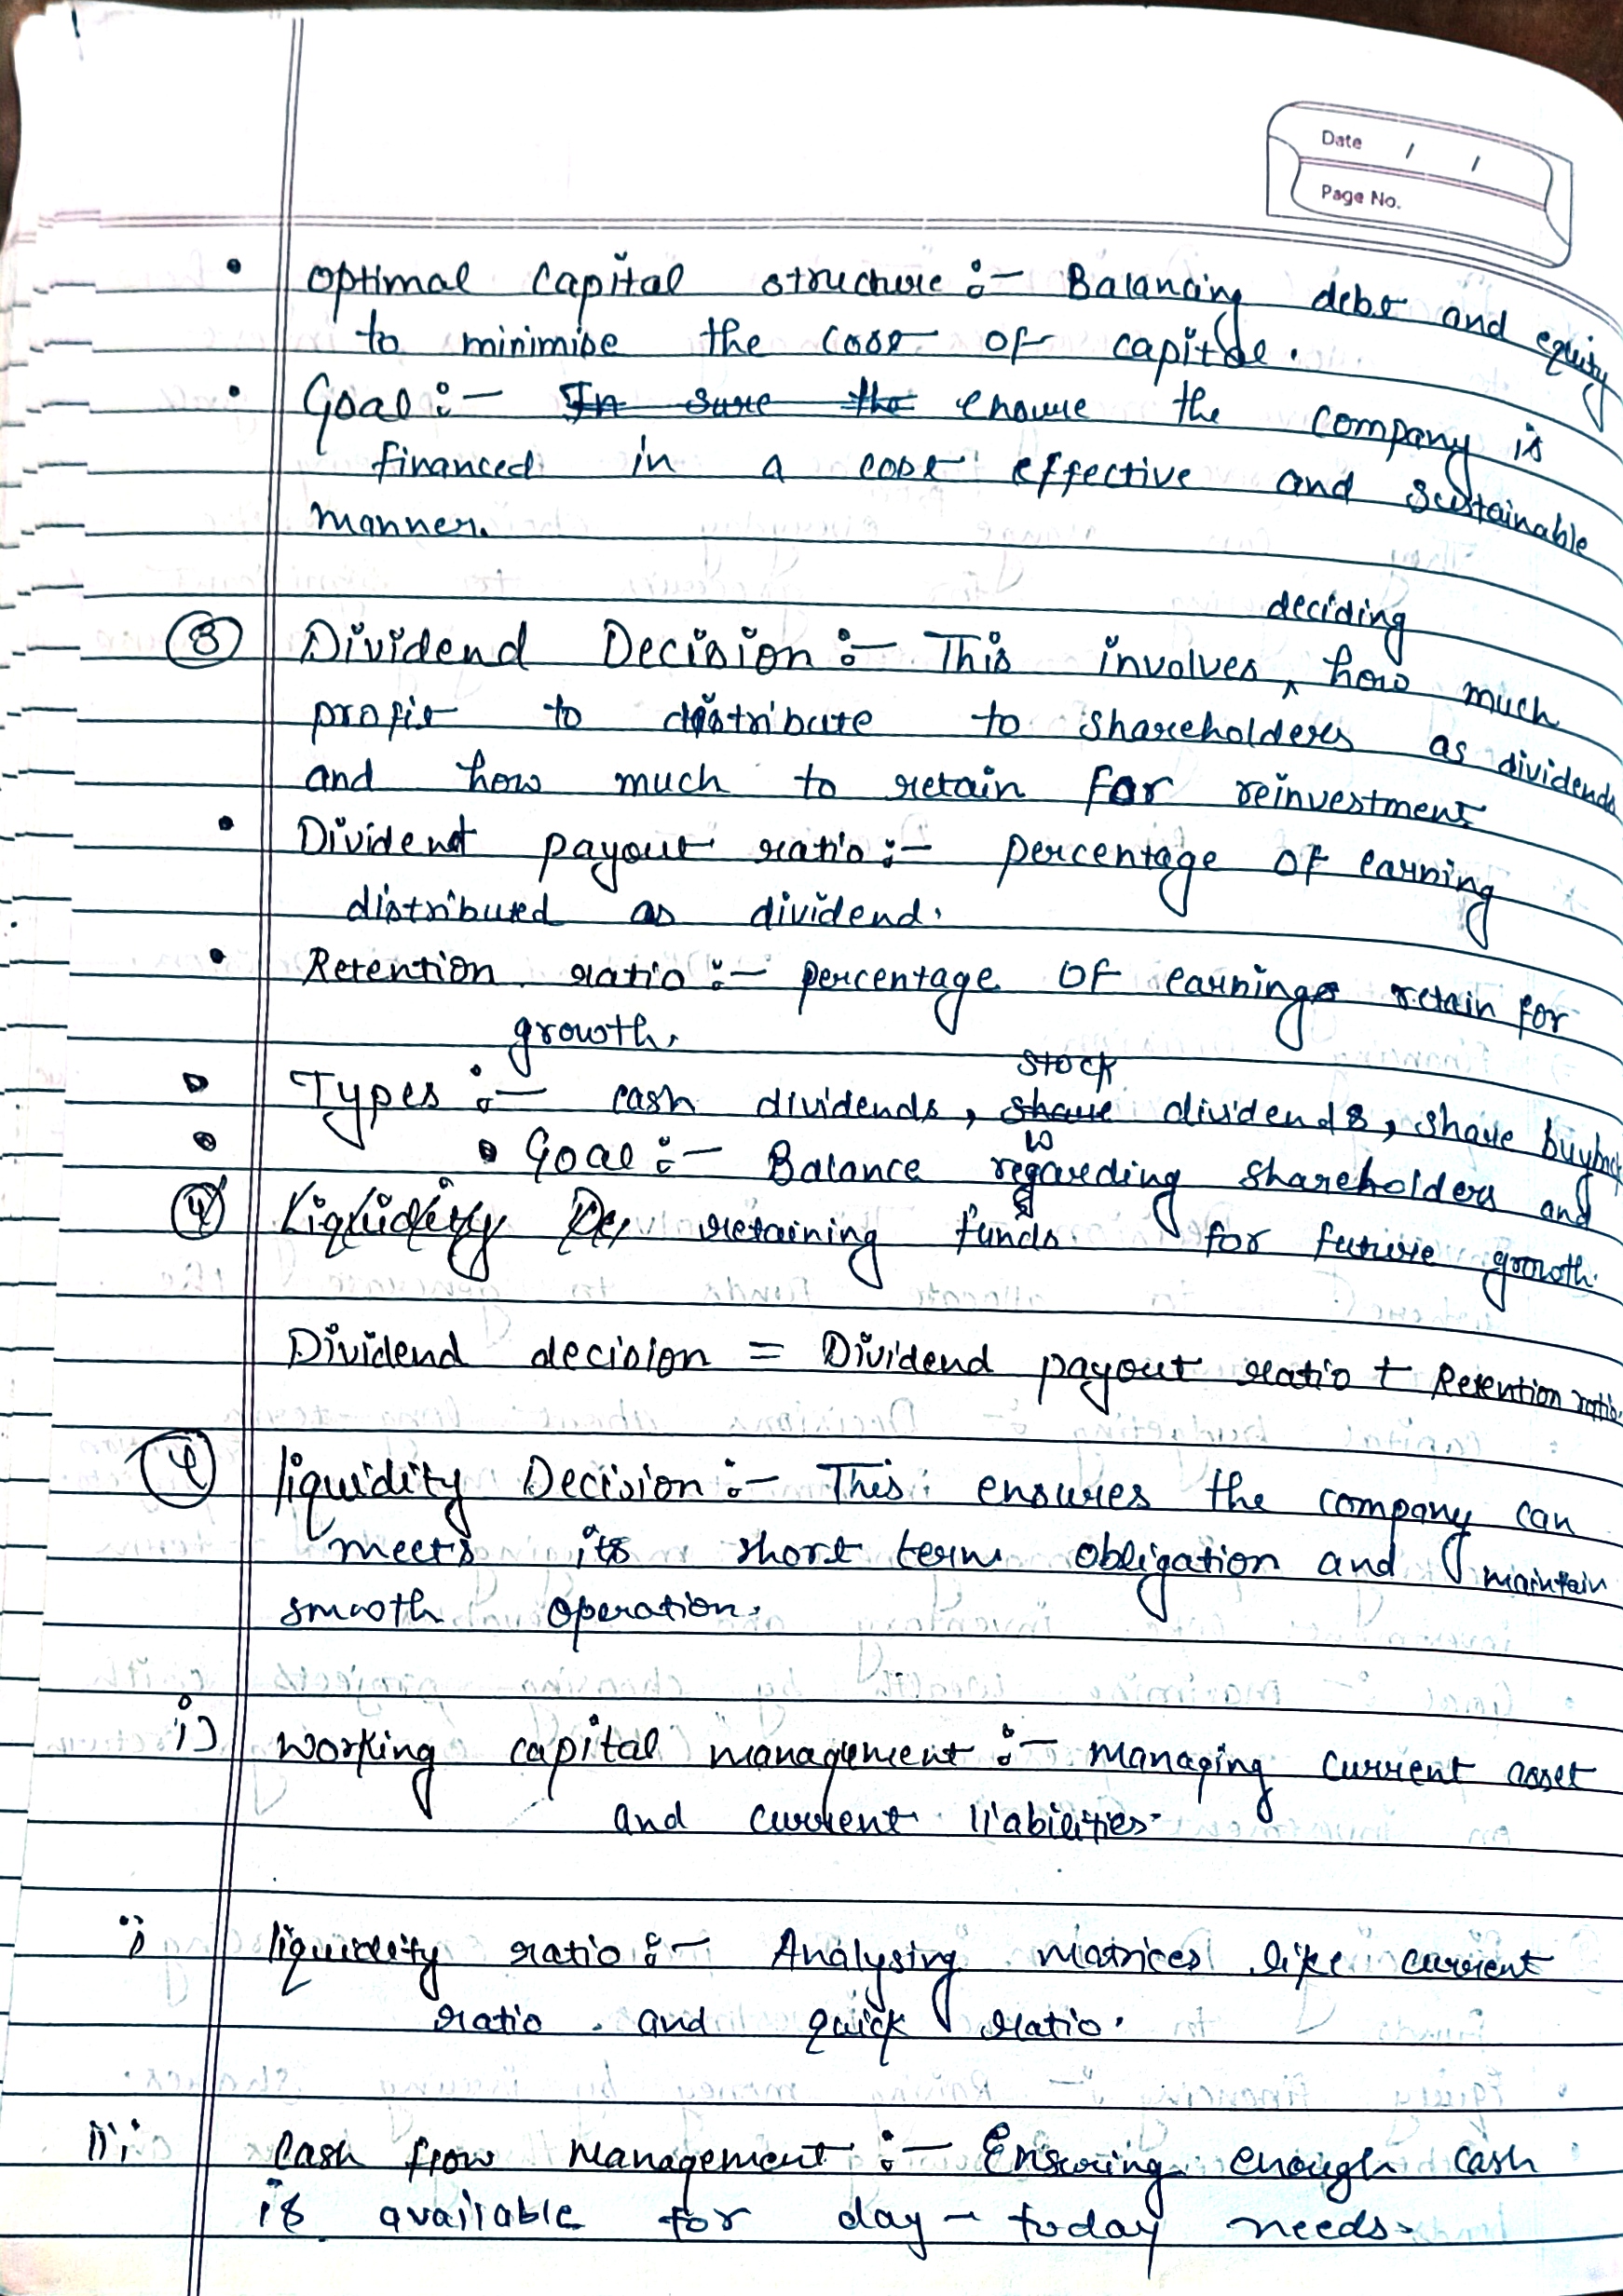 Date / /
Page No.
• Optimal Capital structure :- Balancing debt and equity
to minimise the cost of capital.
• Goal :- In sure the ensure the company is
financed in a cost effective and sustainable
manner.
deciding
③ Dividend Decision :- This involves ^ how much
profit to distribute to shareholders as dividends
and how much to retain for reinvestment
• Dividend payout ratio :- percentage of earning
distributed as dividend.
• Retention ratio :- percentage of earnings retain for
growth.
stock
• Types :- cash dividends, share dividends, share buyback
• Goal :- Balance regarding shareholders and
④ Liquidity De retaining funds for future growth.
Dividend decision = Dividend payout ratio + Retention ratio.
④ liquidity Decision :- This ensures the company can
meets its short term obligation and maintain
smooth operation.
i) working capital management :- managing current asset
and current liabilities.
ii liquidity ratio :- Analysing matrices like current
ratio and quick ratio.
iii cash flow management :- Ensuring enough cash
is available for day - today needs.